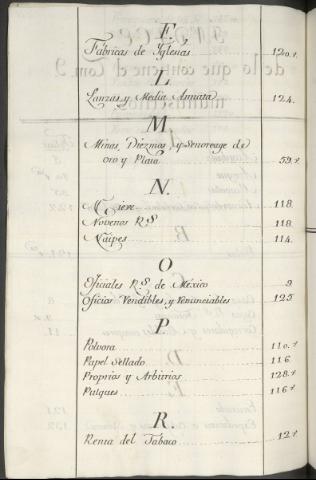 F.
Fábricas de Yglesias 120.t
L
Lanzas, y Media Annata 124.
M
Minas, Diezmos, y Senoreage de
oro y Plata 59.t
N.
Nieve 118
Novenos R.s 118
Naipes 114.
O
Oficiales R.s de México 9
Oficios Vendibles, y Renunciables 125
P
Pólvora 110.t
Papel Sellado 116
Proprios y Arbitrios 128.t
Pulques 116.t
R.
Renta del Tabaco 12.t